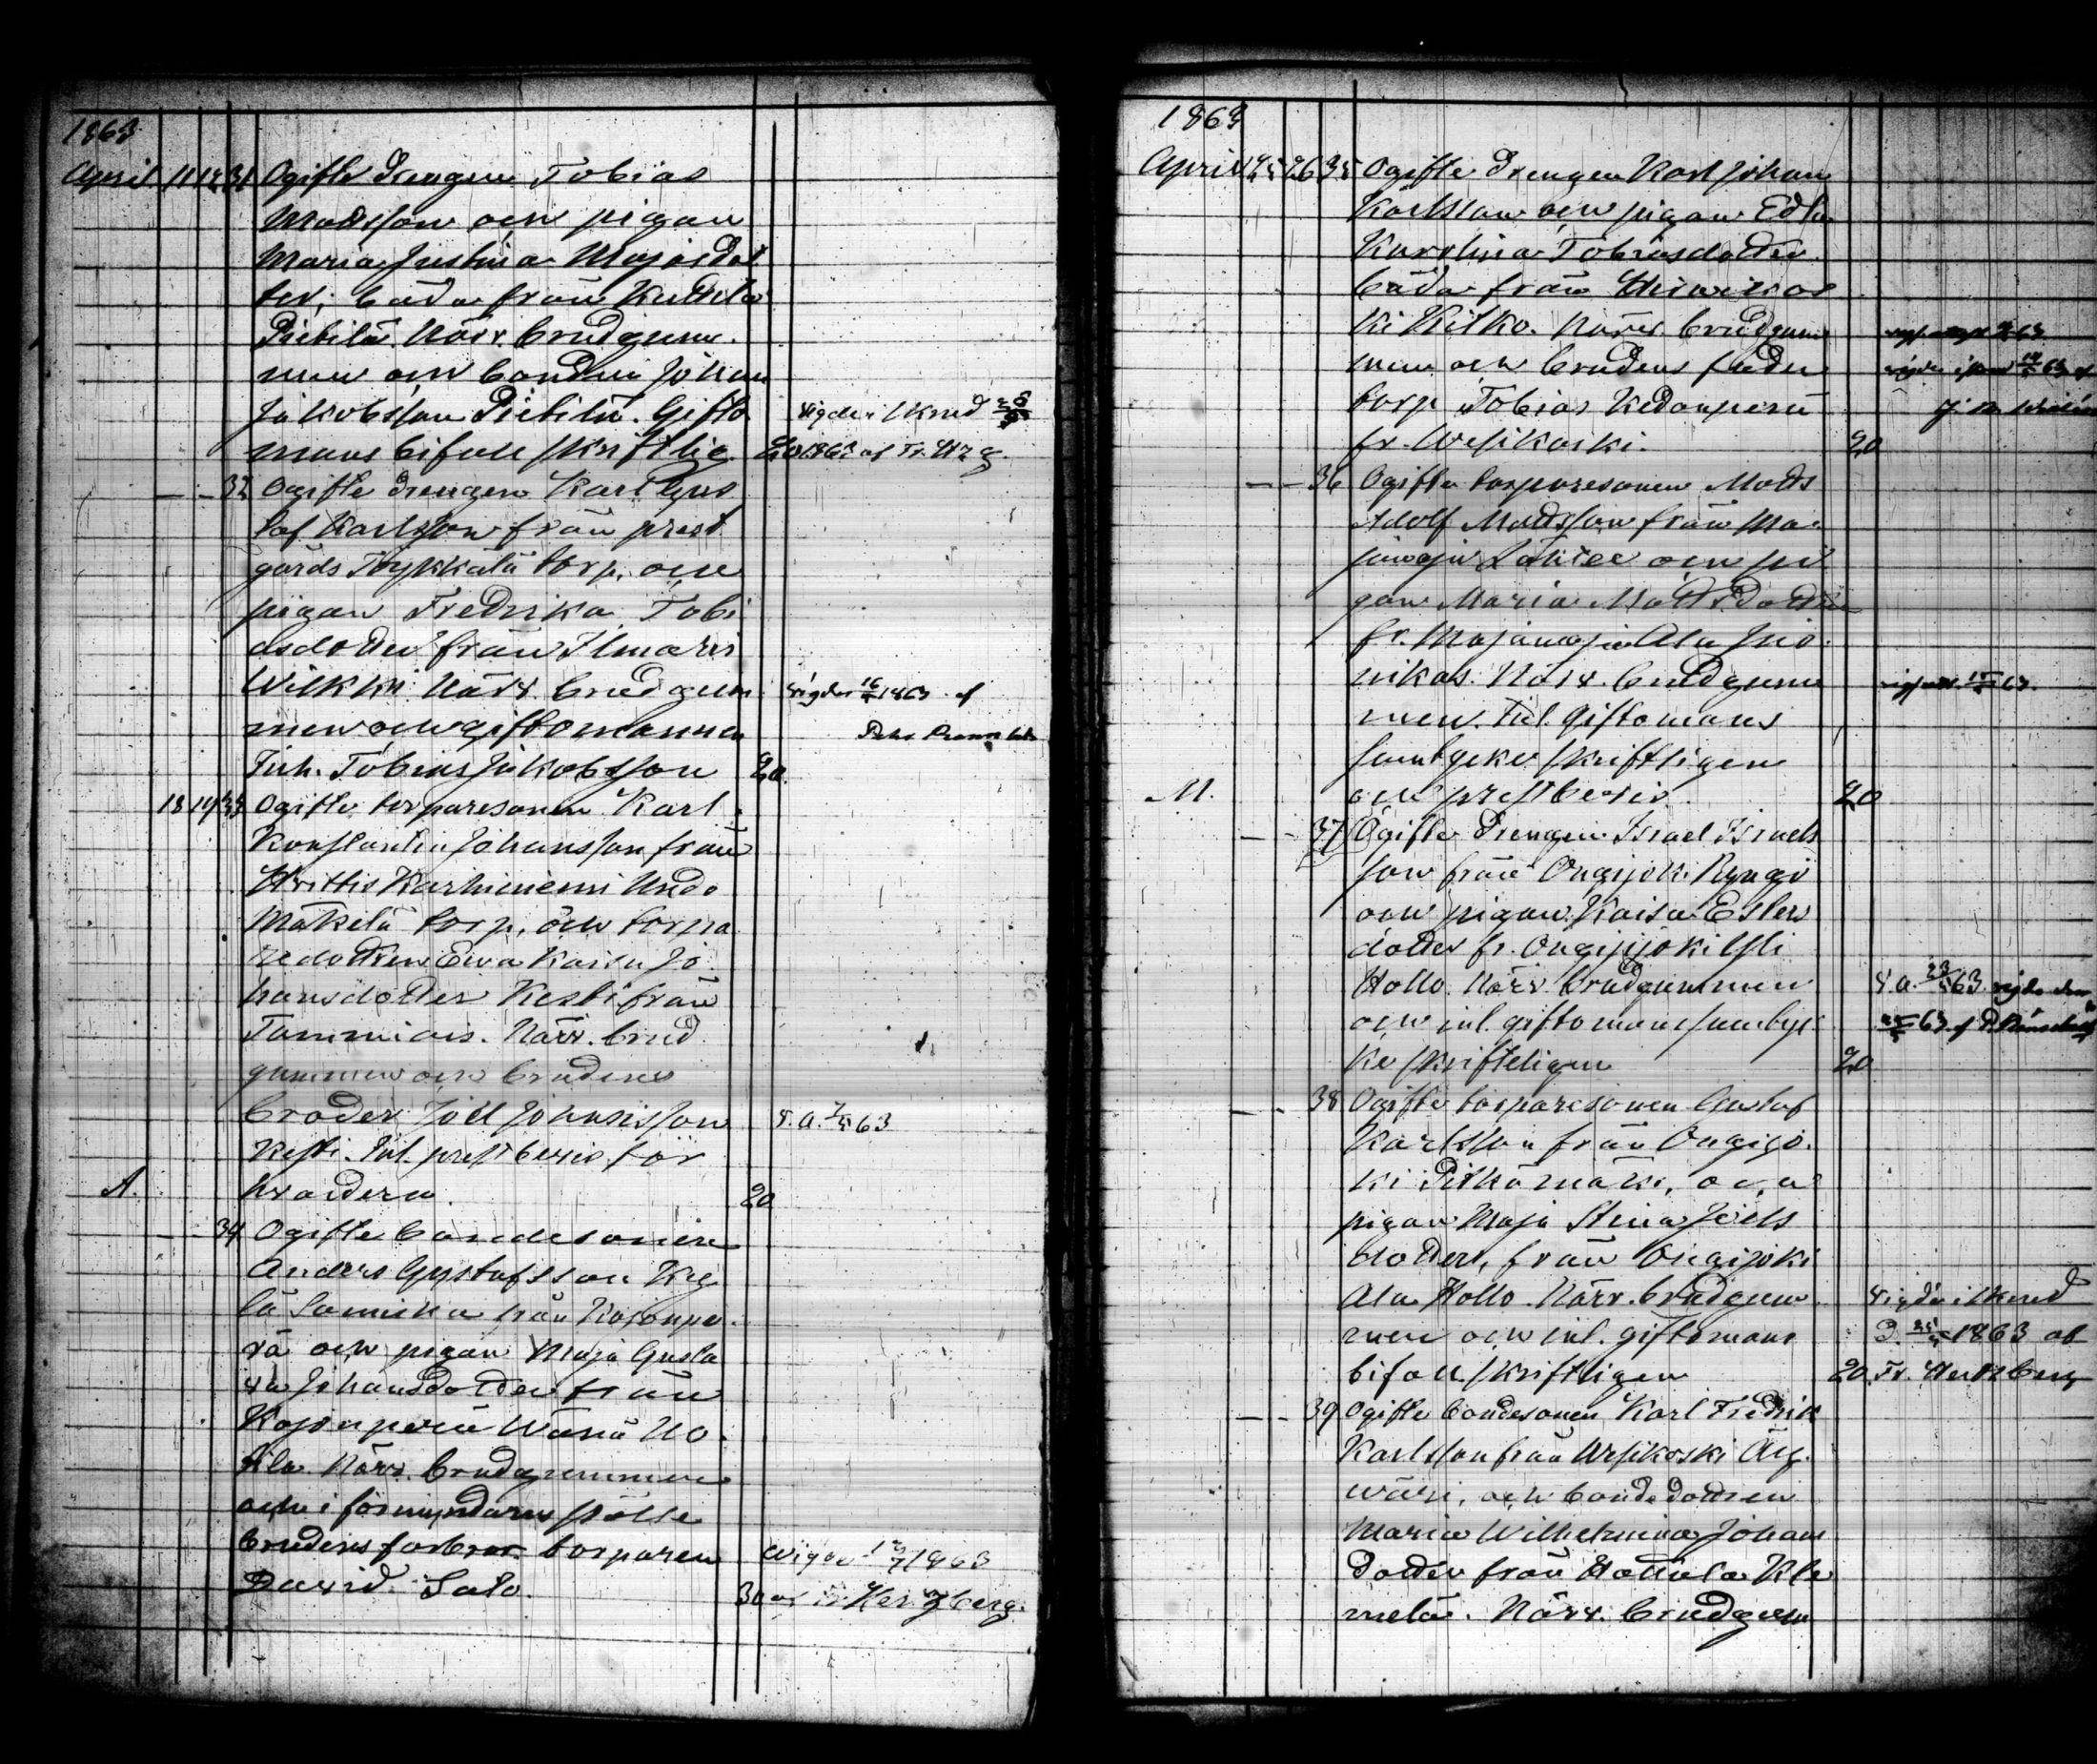 1863
April 11 12 31 Ogifte drengen Tobias
Mattsson och pigan
Maria Justina Majasdot
ter, båda från Kuttila
Pietilä. Närv. brudgum
men och bonden Johan
Jakobsson Pietilä. Gifto vigde i Urkund
mans bifall skriftlig. 20 1863 af Fr. Hzg.
— - 32 Ogifte drengen Karl Gus
taf Karlsson från prest
gårds Töykkälä torp, och
pigan Fredrika Tobi
asdotter från Ilmaris
Wilkki. Närv. brudgum vigde 16 1863 af
men och giftomannen
Inh. Tobias Jakobsson 20
18 19 33 Ogifte torparesonen Karl
Konstantin Johansson från
Hvittis Karhiniemi Undo
Mäkelä torp, och torpa
redottren Eva Kaisa Jo
hansdotter Kesti från
Tammiais. Närv. brud
gummen och brudens
broder Joel Johansson v. a. 63
Kesti. Inl. prestbevis för
A. hvardera. 20
— - 34 Ogifte bondesonen
Anders Gustafsson Kyg
lä Sannika från Kojonpe
rä och pigan Maja Gusta
va Johansdotter från
Kojonperä Wänä Uo
tila. Närv. brudgummen
och i förmyndarens ställe
brudens farbror torparen wigde 1863
David Salo. 30 af Fr. Herzberg.
1863
April 25 26 35 Ogifte drengen Karl Johan
Karlsson och pigan Edla
Karolina Tobiasdotter
båda från
ki Kilko. Närv. brudgum 63
men och brudens fader 63 af
torp Tobias Kedonperä
fr. Wesikoski. 20
— - 36 Ogifte torparesonen Matts
Adolf Mattsson från Ma
janoja Lähtee och pi
gan Maria Mattsdotter
fr. Majanoja Ala Juo
nikas. Närv. brudgum 63.
men. Inl. giftomans
samtycke skriftligen
M. och prestbevis. 20
— - 37 Ogifte drengen Israel Israels
son från Ongijoki Ryngö
och pigan Kaisa Esters
dotter fr. Ongijoki Yli
Hollo. Närv. brudgummen v. a. 23 63. vigde
och inl. giftomans samtyc 63 af
ke skrifteligen 20
— - 38 Ogifte torparesonen Gustaf
Karlsson från Ongijo
ki Pitkämäki, och
pigan Maja Stina Joels
dotter, från Ongijoki
Ala Hollo. Närv. brudgum Vigde i Urkund
men och inl. giftomans 1863 af
bifall skriftligen 20 Fr. Hertzberg
— - 39 Ogifte bondesonen Karl Fredrik
Karlsson från Wesikoski Äij
wäri, och bondedottren
Maria Wilhelmina Johans
dotter från Hattula Kle
melä. Närv. brudgum